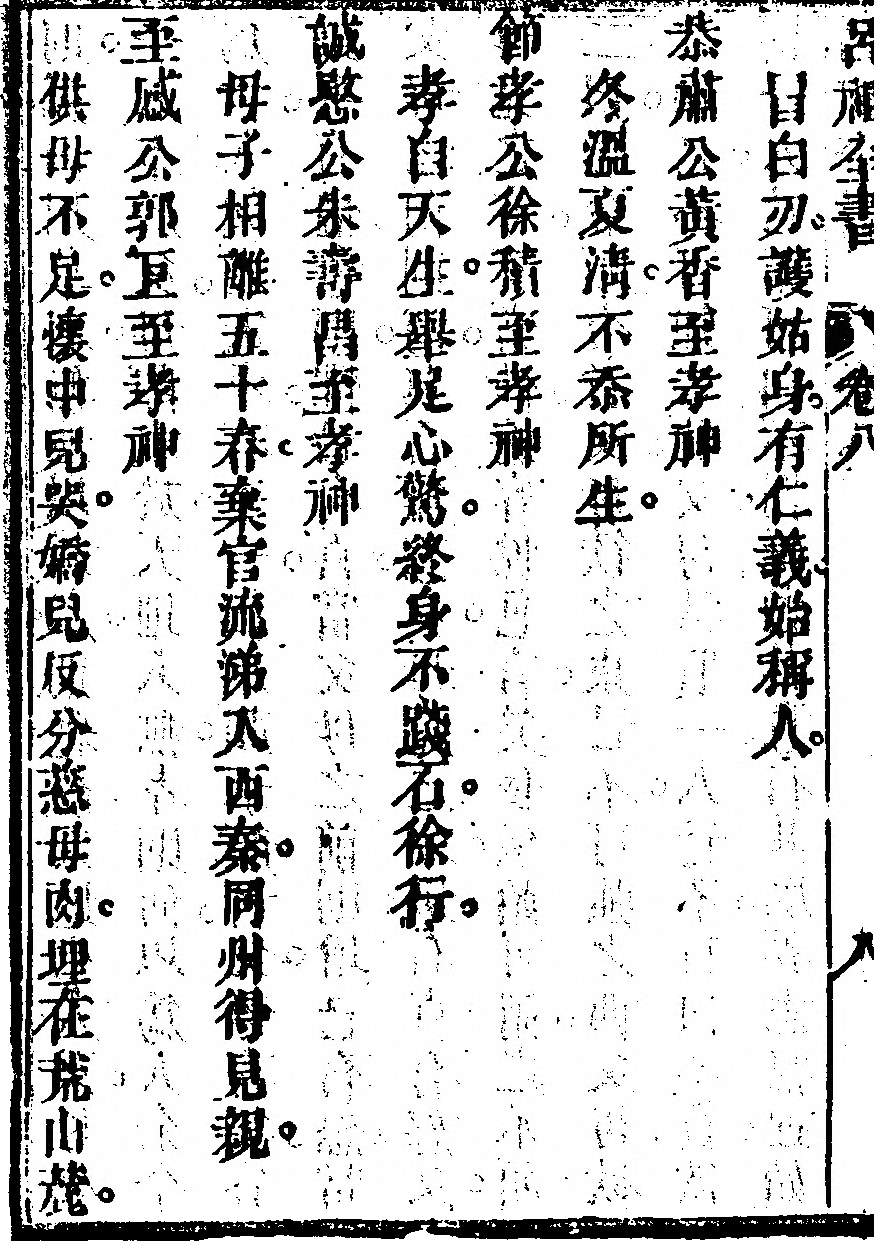 呂祖全書 卷八 八
甘白刃。護姑身。有仁義。始稱人。
恭肅公黃香至孝神
冬溫夏凊。不忝所生。
節孝公徐積至孝神
孝自天生。舉足心驚。終身不踐石。徐行。
誠愍公朱壽昌至孝神
母子相離五十春。棄官流涕入西秦。同州得見親。
至感公郭巨至孝神
供母不足。懷中兒哭。嬌兒反分慈母肉。埋在荒山麓。